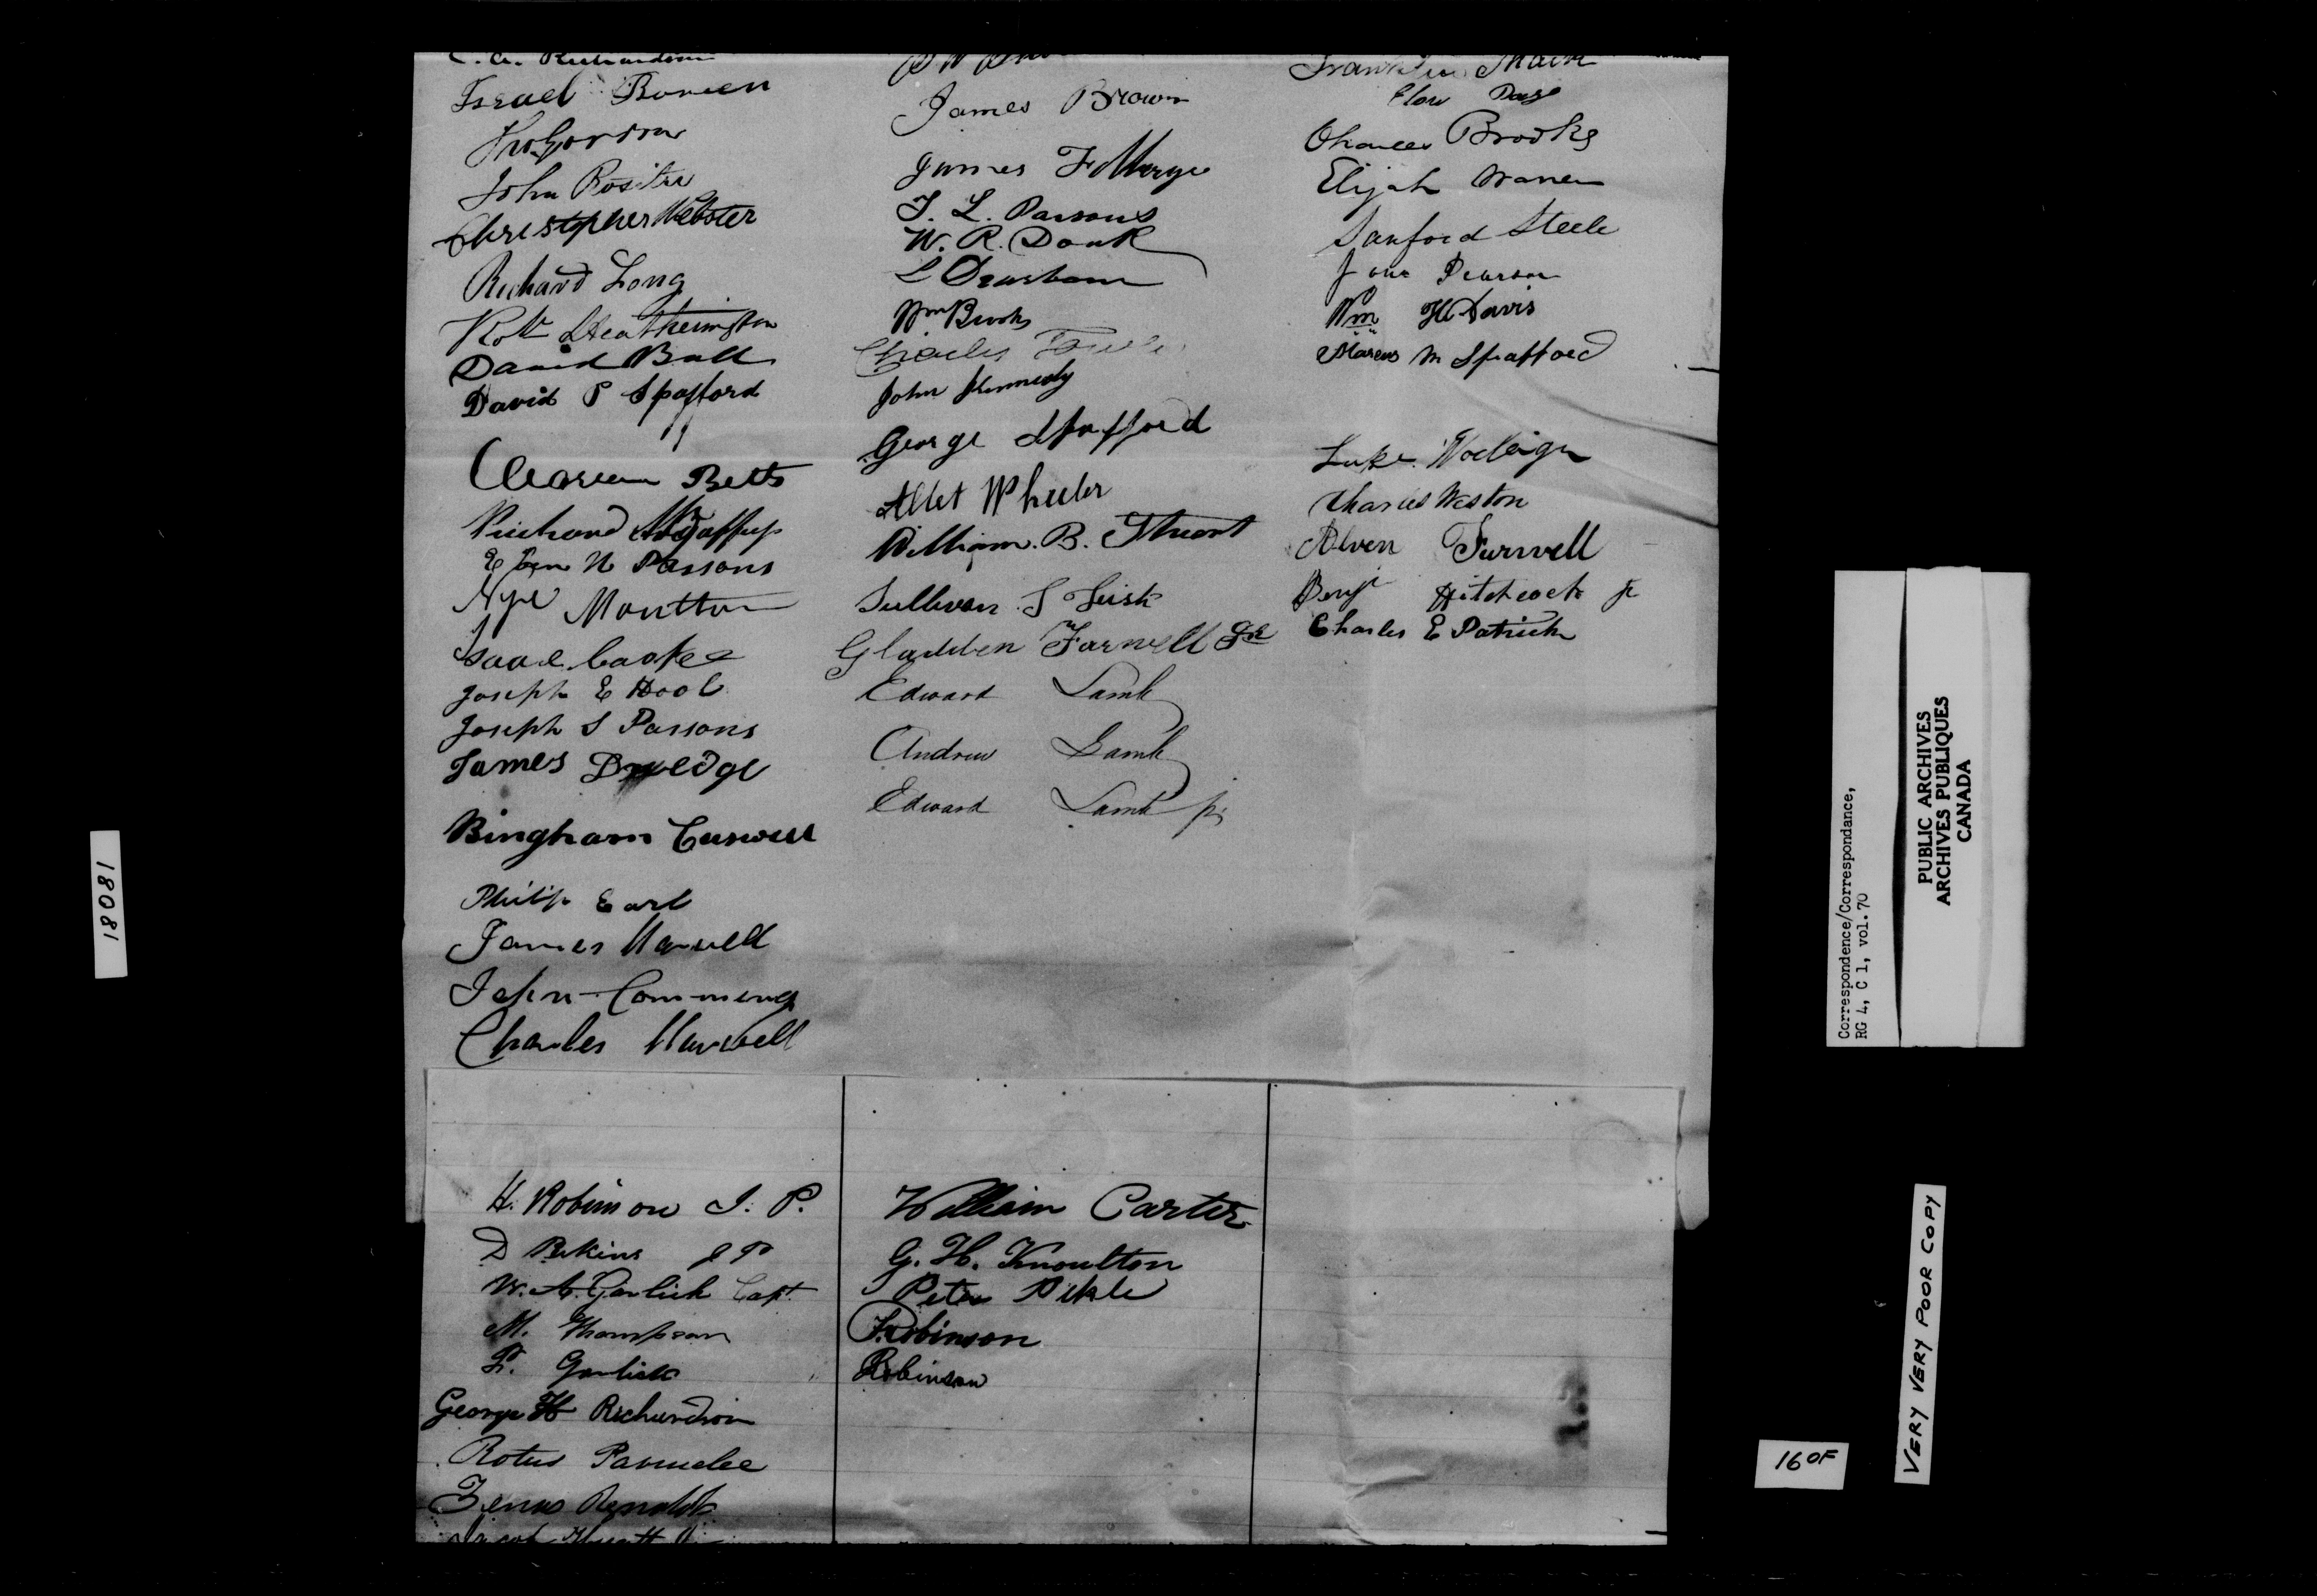 C. A. Richardson
Israel Bowen
Tho Gordon
John Rositer
Christopher Webster
Richard Long
Robt Heatherington
David Ball
David P Spafford
Betts
Richard
Eben N Parsons
Nye Moulton
Isaac
Joseph E Hool
Joseph S Parsons
James Dredge
Bingham
Philip Earl
James Maxwell
John Commeng
Charles Maxwell
James Brown
James
T. L. Parsons
W. R. Doak
L
Wm Brooks
Charles
John Kennedy
George Spafford
Allet Wheeler
William. B. Stuart
Sullivan S Lusk
Gladden Farwell Jr
Edward Lamb
Andrew Lamb
Edward Lamb jr
Franklin
Page
Charles Brooks
Elijah Warren
Sanford Steele
Pearson
Wm H Davis
Marcus M Spafford
Luke
Charles Weston
Alven Farwell
Benj Hitchcock jr
Charles E Patrick
H. Robinson J. P.
D Perkins J P
W. A. Garlick Capt.
M. Thompson
F. Garlick
George H Richardson
Rotus Parmelee
Zenas Renolds
William Carter
G. H. Knoulton
Peter Pikle
Robinson
Robinson
18081
Correspondence/Correspondance,
RG 4, C 1, vol.70
PUBLIC ARCHIVES
ARCHIVES PUBLIQUES
CANADA
VERY VERY POOR COPY
16 OF